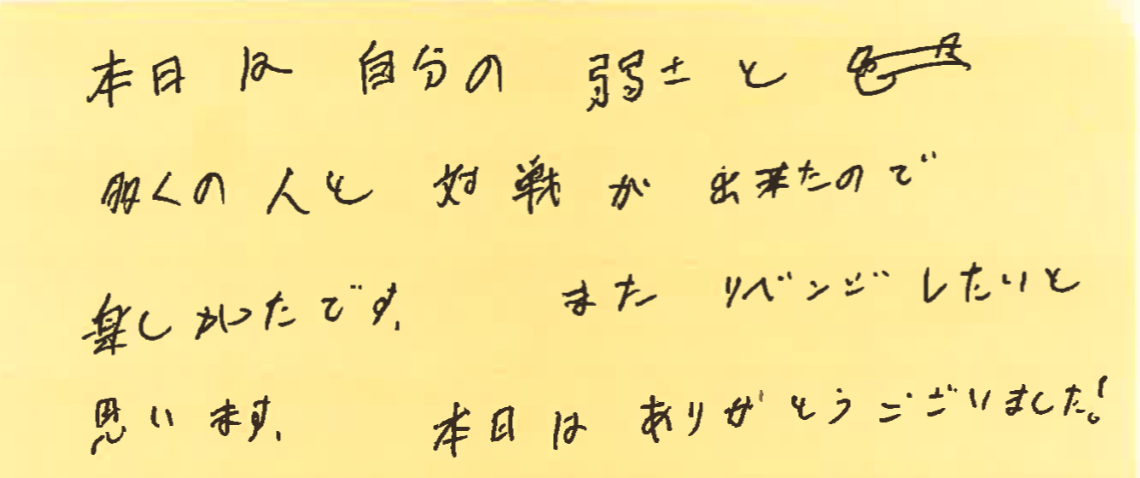 本日は自分の弱さと
多くの人と対戦が出来たので
楽しかったです。 またリベンジしたいと
思います。 本日はありがとうございました!